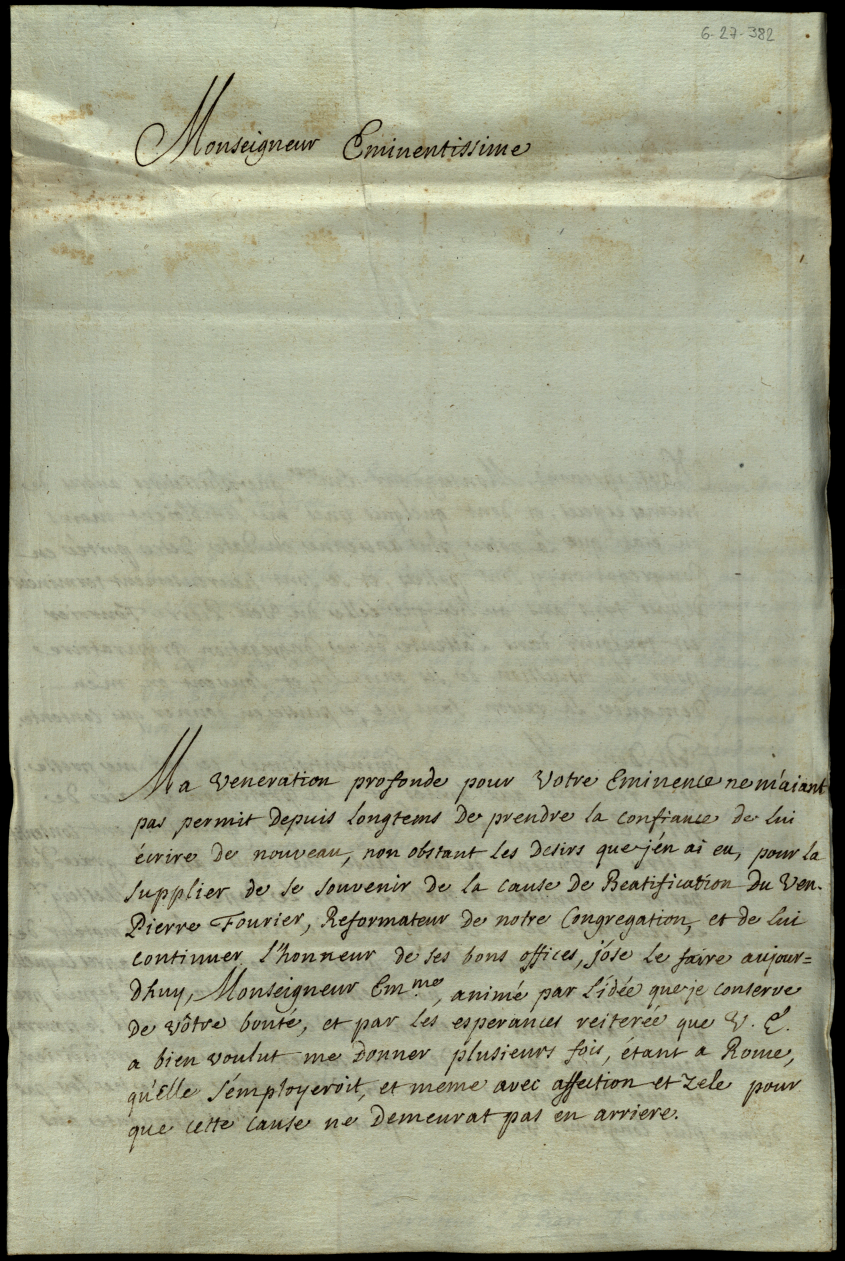 6-27-382
Monseigneur Eminentissime
Ma veneration profonde pour Votre Eminence ne m'aiant
pas permit depuis longtems de prendre la confiance de lui
écrire de nouveau, non obstant les desirs que j'én ai eu, pour la
supplier de se souvenir de la cause de Beatification du Ven.
Pierre Fourier, Reformateur de notre Congregation, et de lui
continuer l'honneur de ses bons offices, j'ose le faire aujour=
dhuy, Monseigneur Em.me, animé par l'idée que je conserve
de vôtre bonté, et par les esperances reiterée que V. E.
a bien voulut me donner plusieurs fois, étant a Rome,
qu'Elle s'émployeroit, et meme avec affection et zele pour
que cette cause ne demeurat pas en arriere.